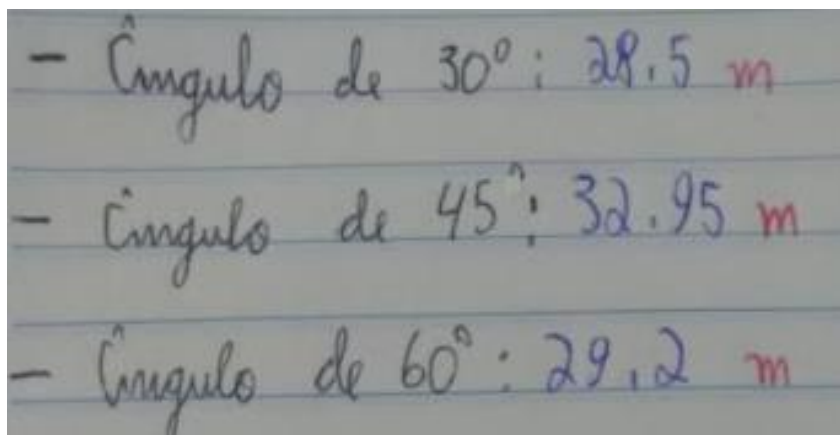 - Ângulo de 30°: 28.5 m
- Ângulo de 45°: 32.95 m
- Ângulo de 60°: 29.2 m